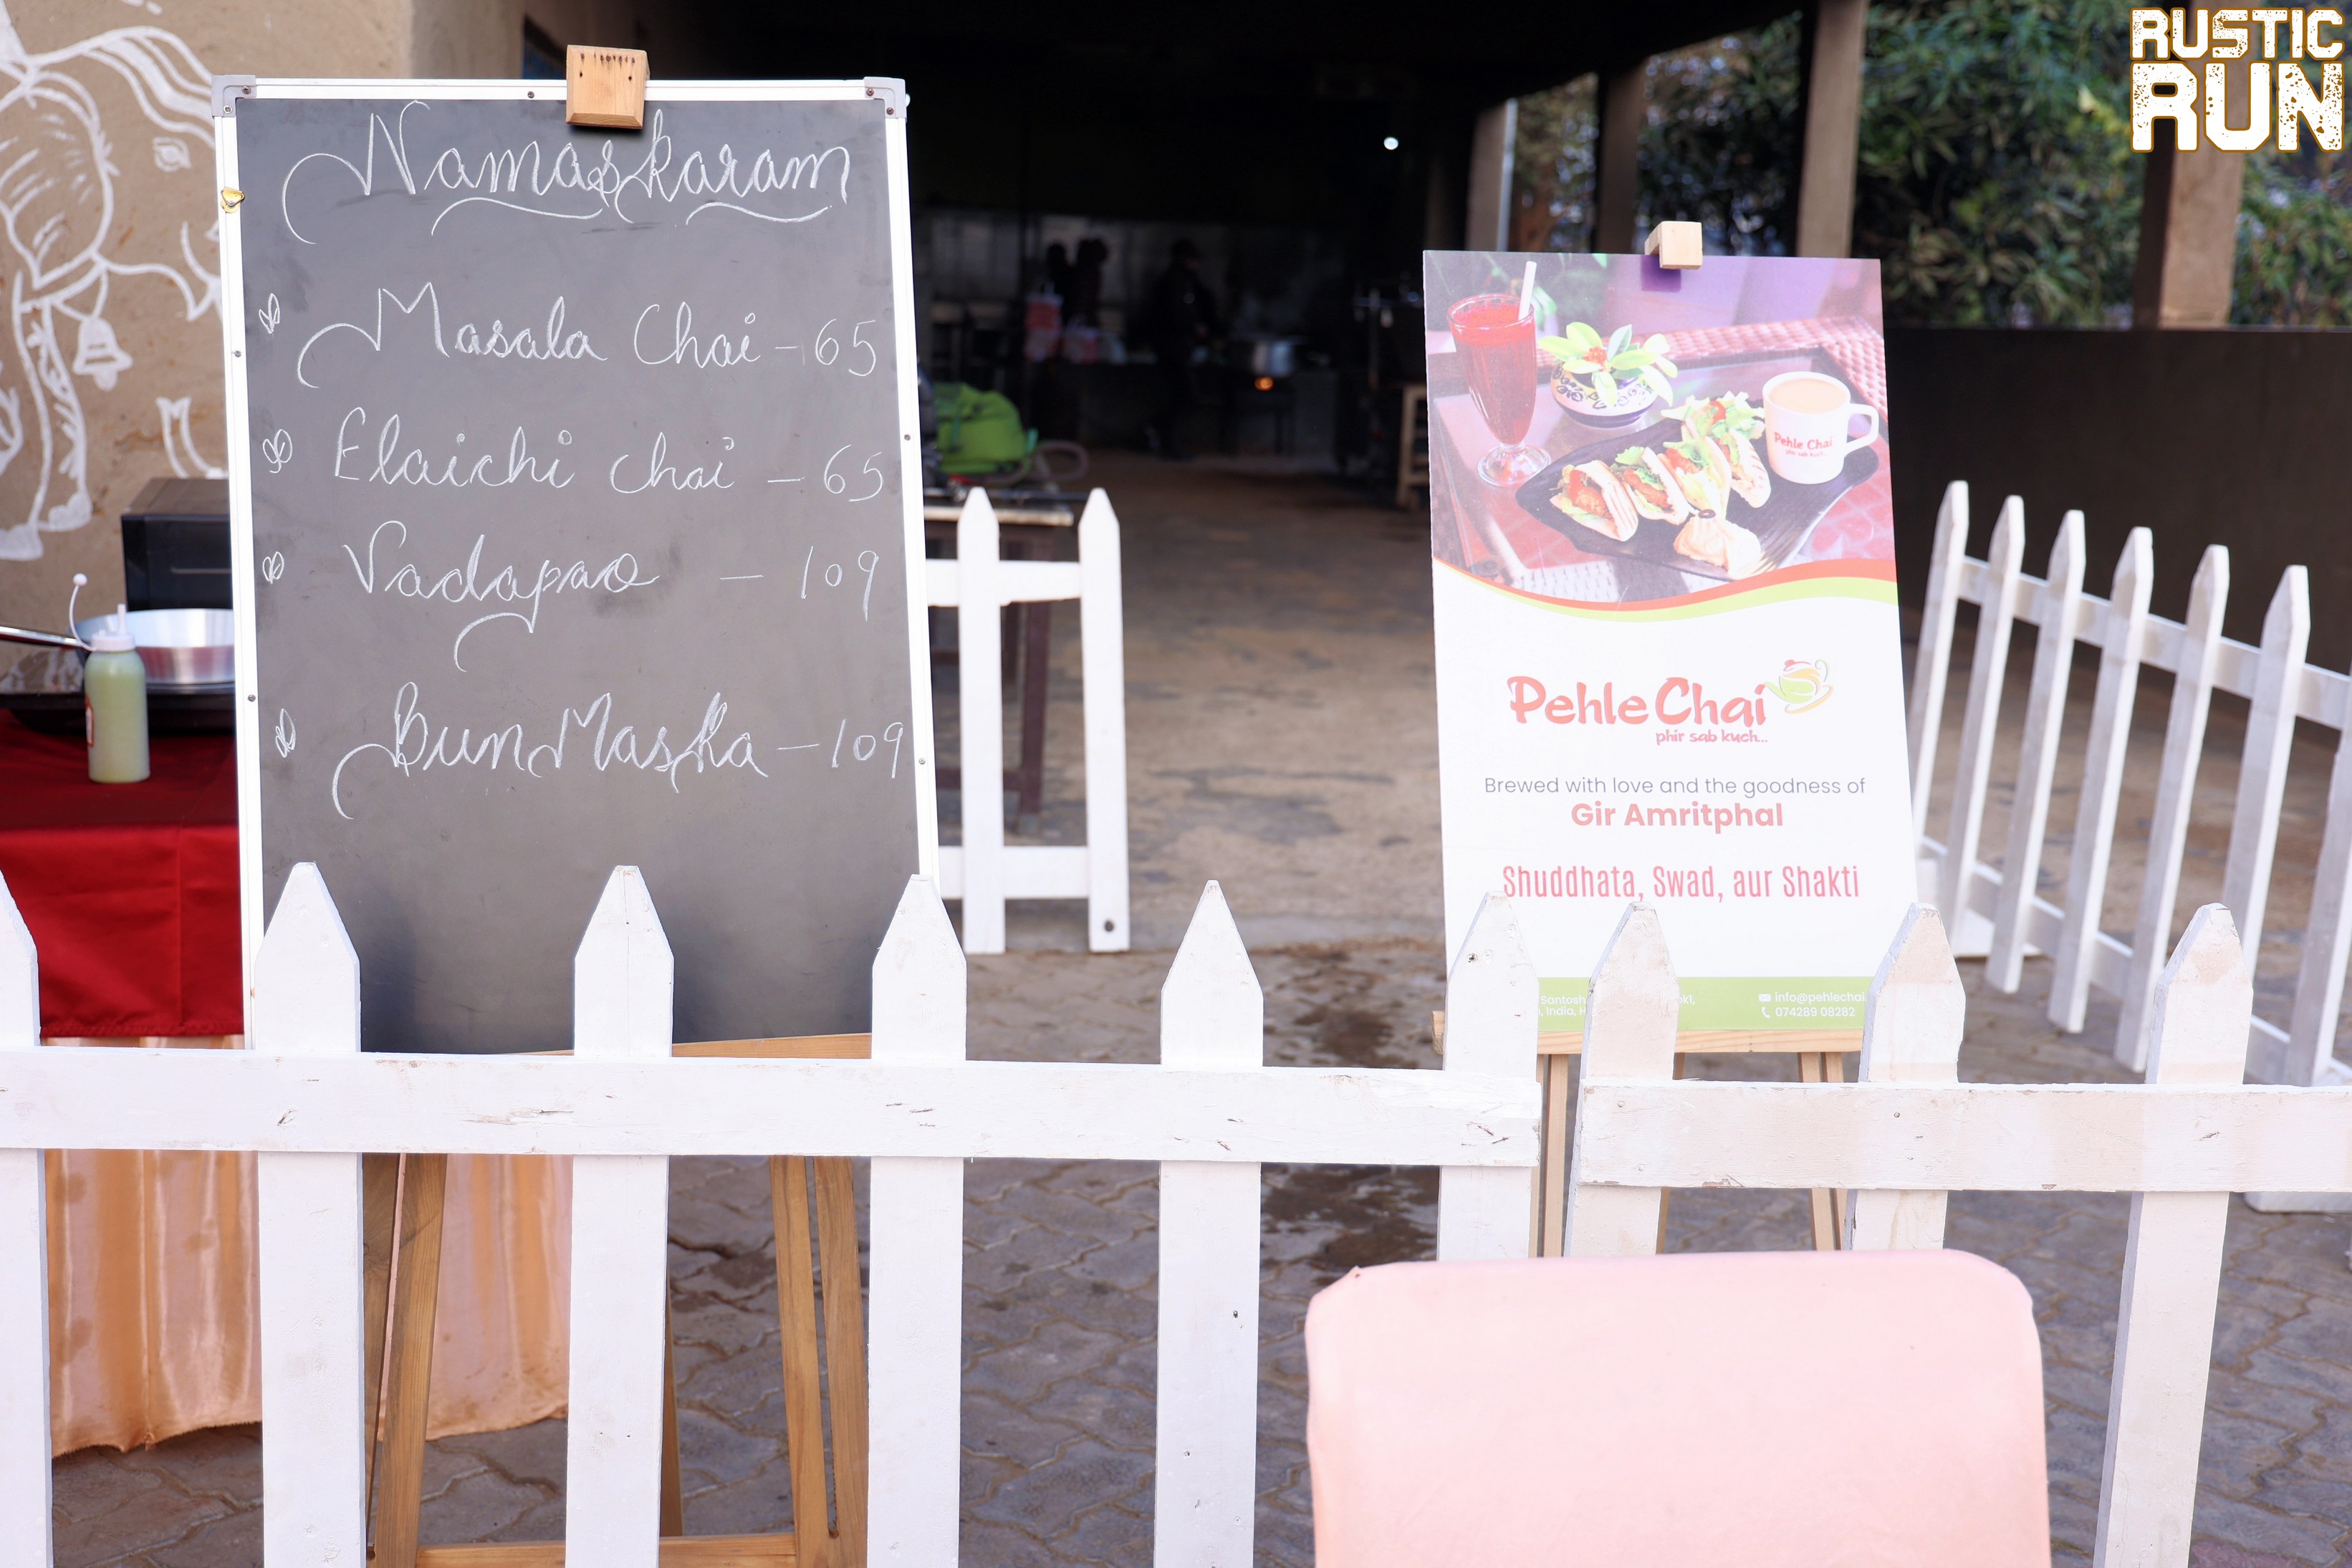 RUSTIC
RUN
Namaskaram
Masala Chai - 65
Elaichi chai - 65
Vadapao - 109
Bun Maska - 109
Pehle Chai
phir sab kuch...
Pehle Chai
phir sab kuch...
Brewed with love and the goodness of
Gir Amritphal
Shuddhata, Swad, aur Shakti
India,
info@pehlechai.
074289 08282